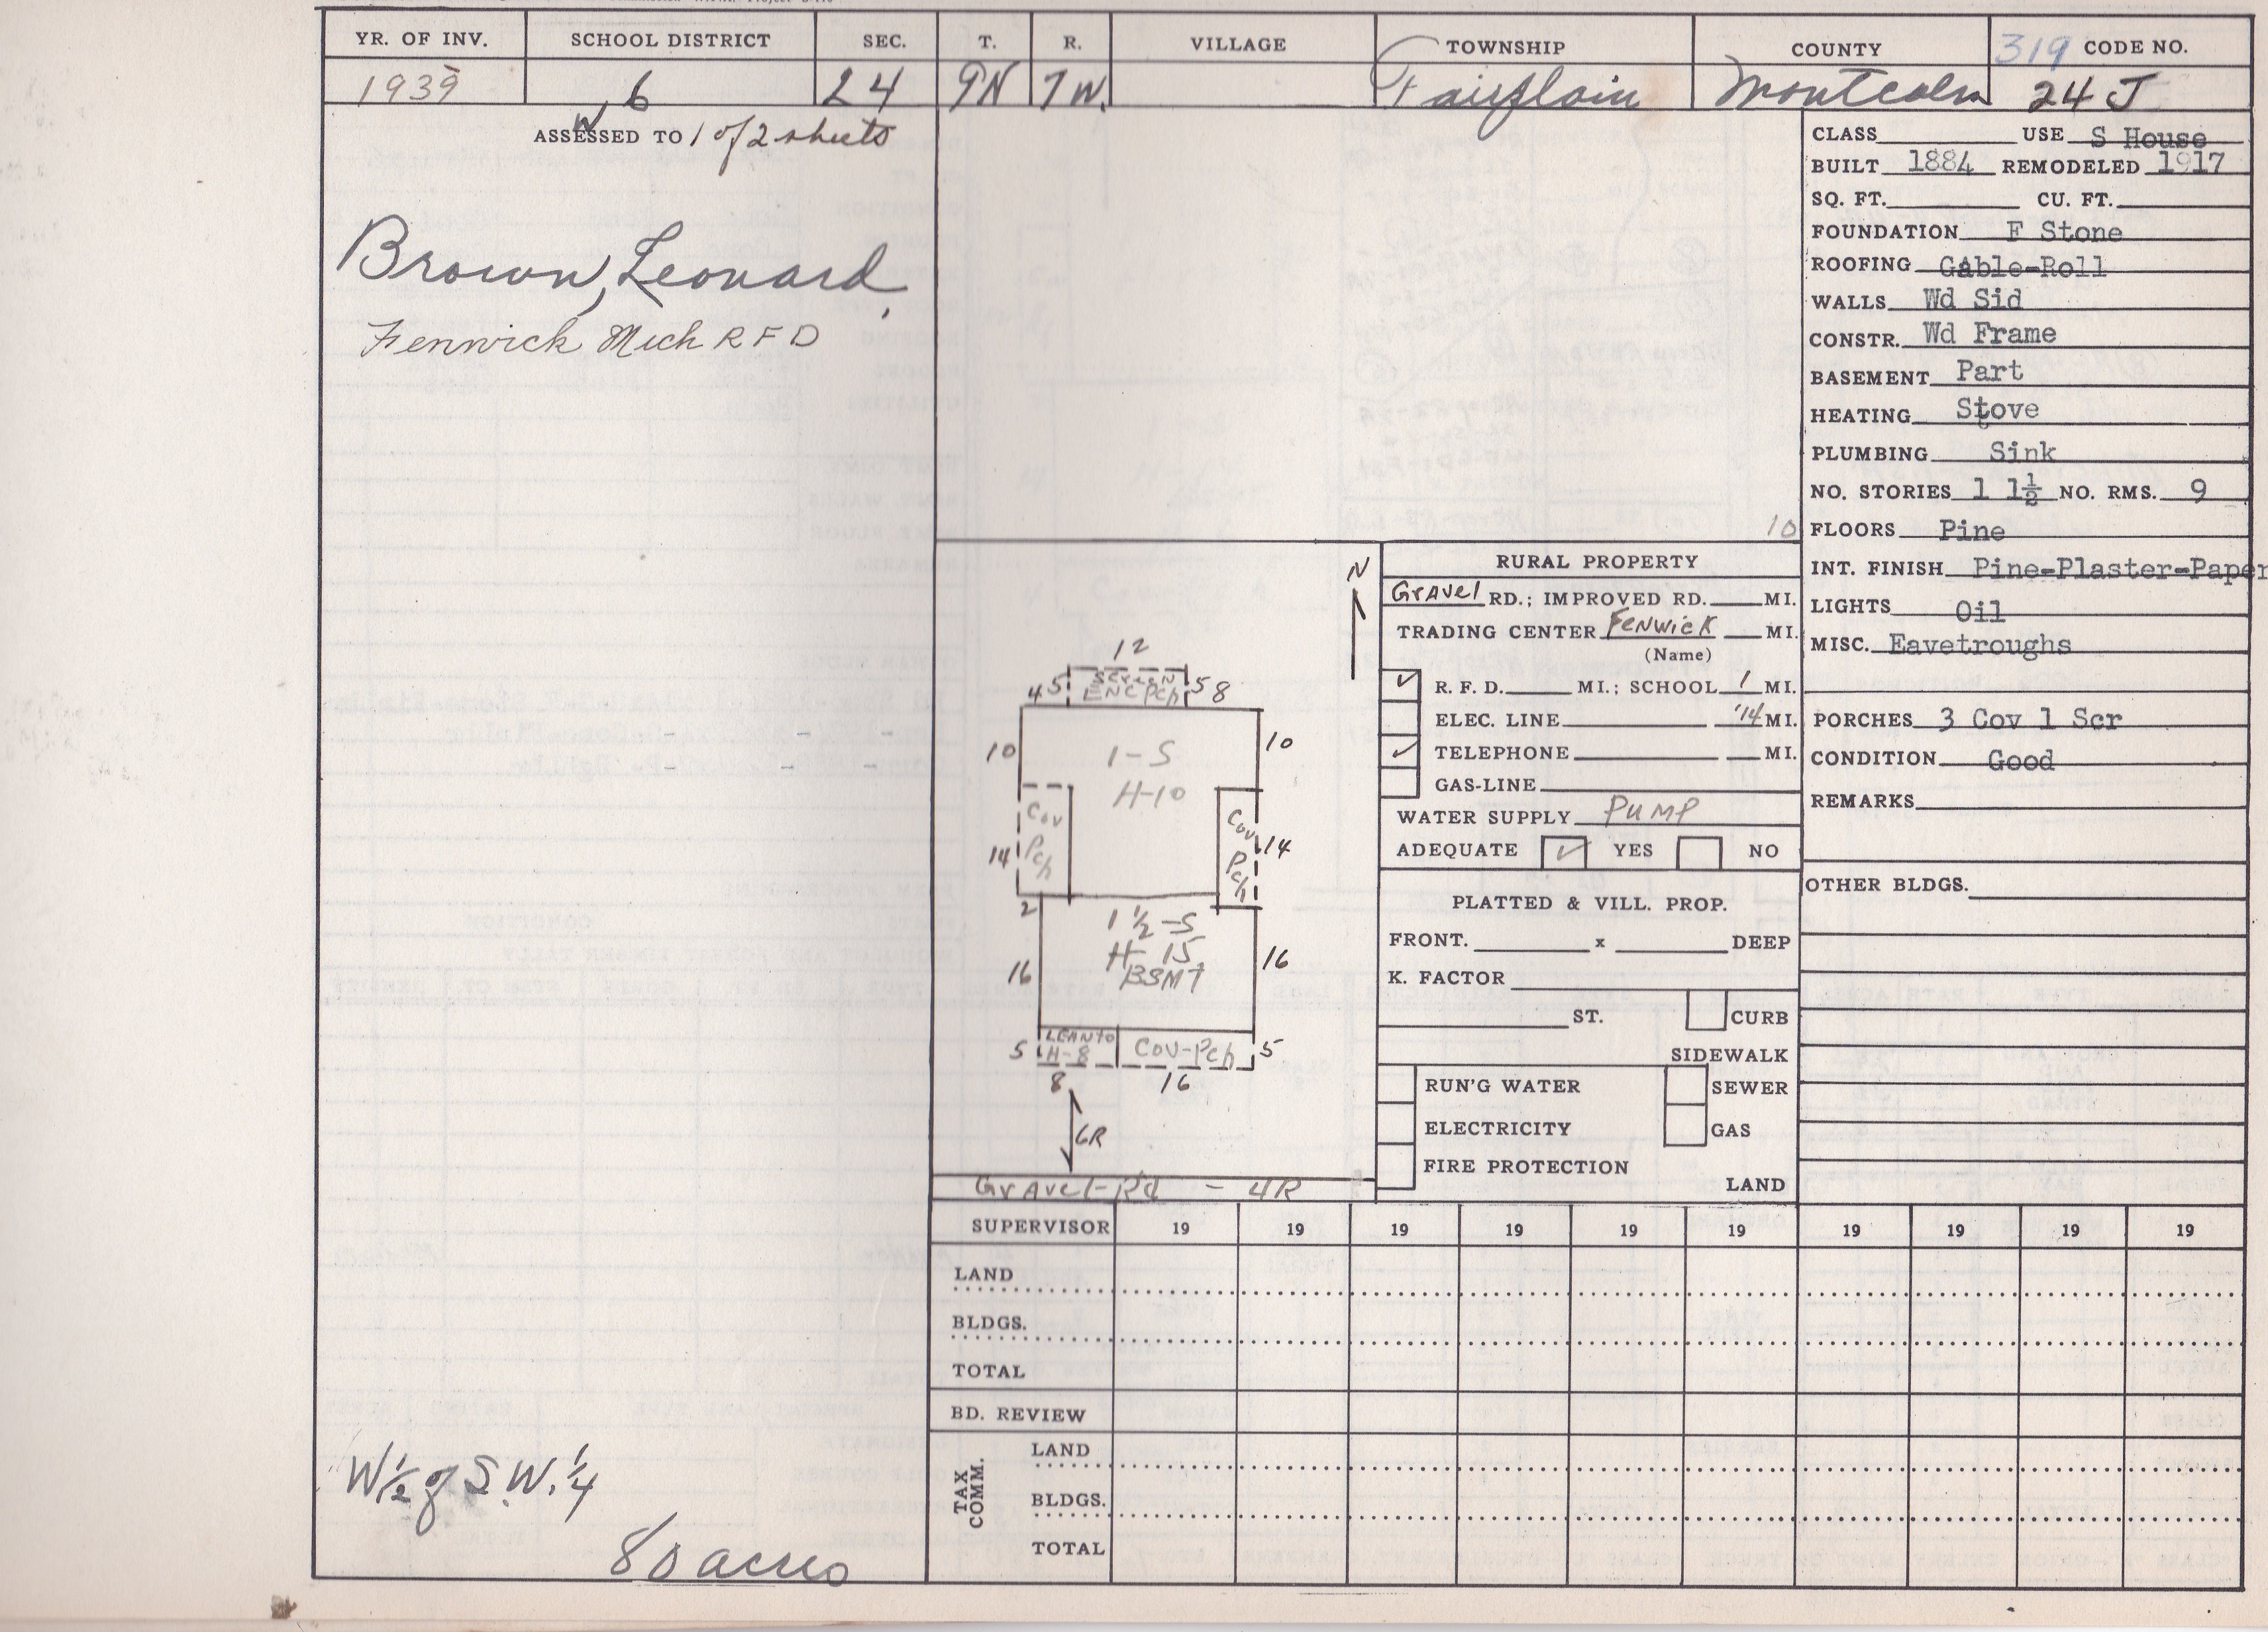 YR. OF INV. SCHOOL DISTRICT SEC. T. R. VILLAGE TOWNSHIP COUNTY 319 CODE NO.
1939 6 24 9N 7W. Fairplain Montcalm 24 J
W
ASSESSED TO 1 of 2 sheets
Brown, Leonard,
Fenwick Mich R F D
W 1/2 of S.W. 1/4
80 acres
12
4 5 Screen 5 8
ENC Pch
10 1-S 10
H-10
Cov Pch Cov Pch
14 14
2
1 1/2 -S
H-15
16 BSMT 16
5 LEANTO H-8 Cov-Pch 5
8 16
6R
Gravel-Rd - 4R
N
10
RURAL PROPERTY
Gravel RD.; IMPROVED RD. MI.
TRADING CENTER Fenwick MI.
(Name)
✓ R. F. D. MI.; SCHOOL 1 MI.
ELEC. LINE 1/4 MI.
✓ TELEPHONE MI.
GAS-LINE
WATER SUPPLY Pump
ADEQUATE ✓ YES NO
PLATTED & VILL. PROP.
FRONT. x DEEP
K. FACTOR
ST. CURB
SIDEWALK
RUN'G WATER SEWER
ELECTRICITY GAS
FIRE PROTECTION
LAND
CLASS USE S House
BUILT 1884 REMODELED 1917
SQ. FT. CU. FT.
FOUNDATION F Stone
ROOFING Gable-Roll
WALLS Wd Sid
CONSTR. Wd Frame
BASEMENT Part
HEATING Stove
PLUMBING Sink
NO. STORIES 1 1½ NO. RMS. 9
FLOORS Pine
INT. FINISH Pine-Plaster-Paper
LIGHTS Oil
MISC. Eavetroughs
PORCHES 3 Cov 1 Scr
CONDITION Good
REMARKS
OTHER BLDGS.
SUPERVISOR 19 19 19 19 19 19 19 19 19 19
LAND
BLDGS.
TOTAL
BD. REVIEW
TAX COMM.
LAND
BLDGS.
TOTAL